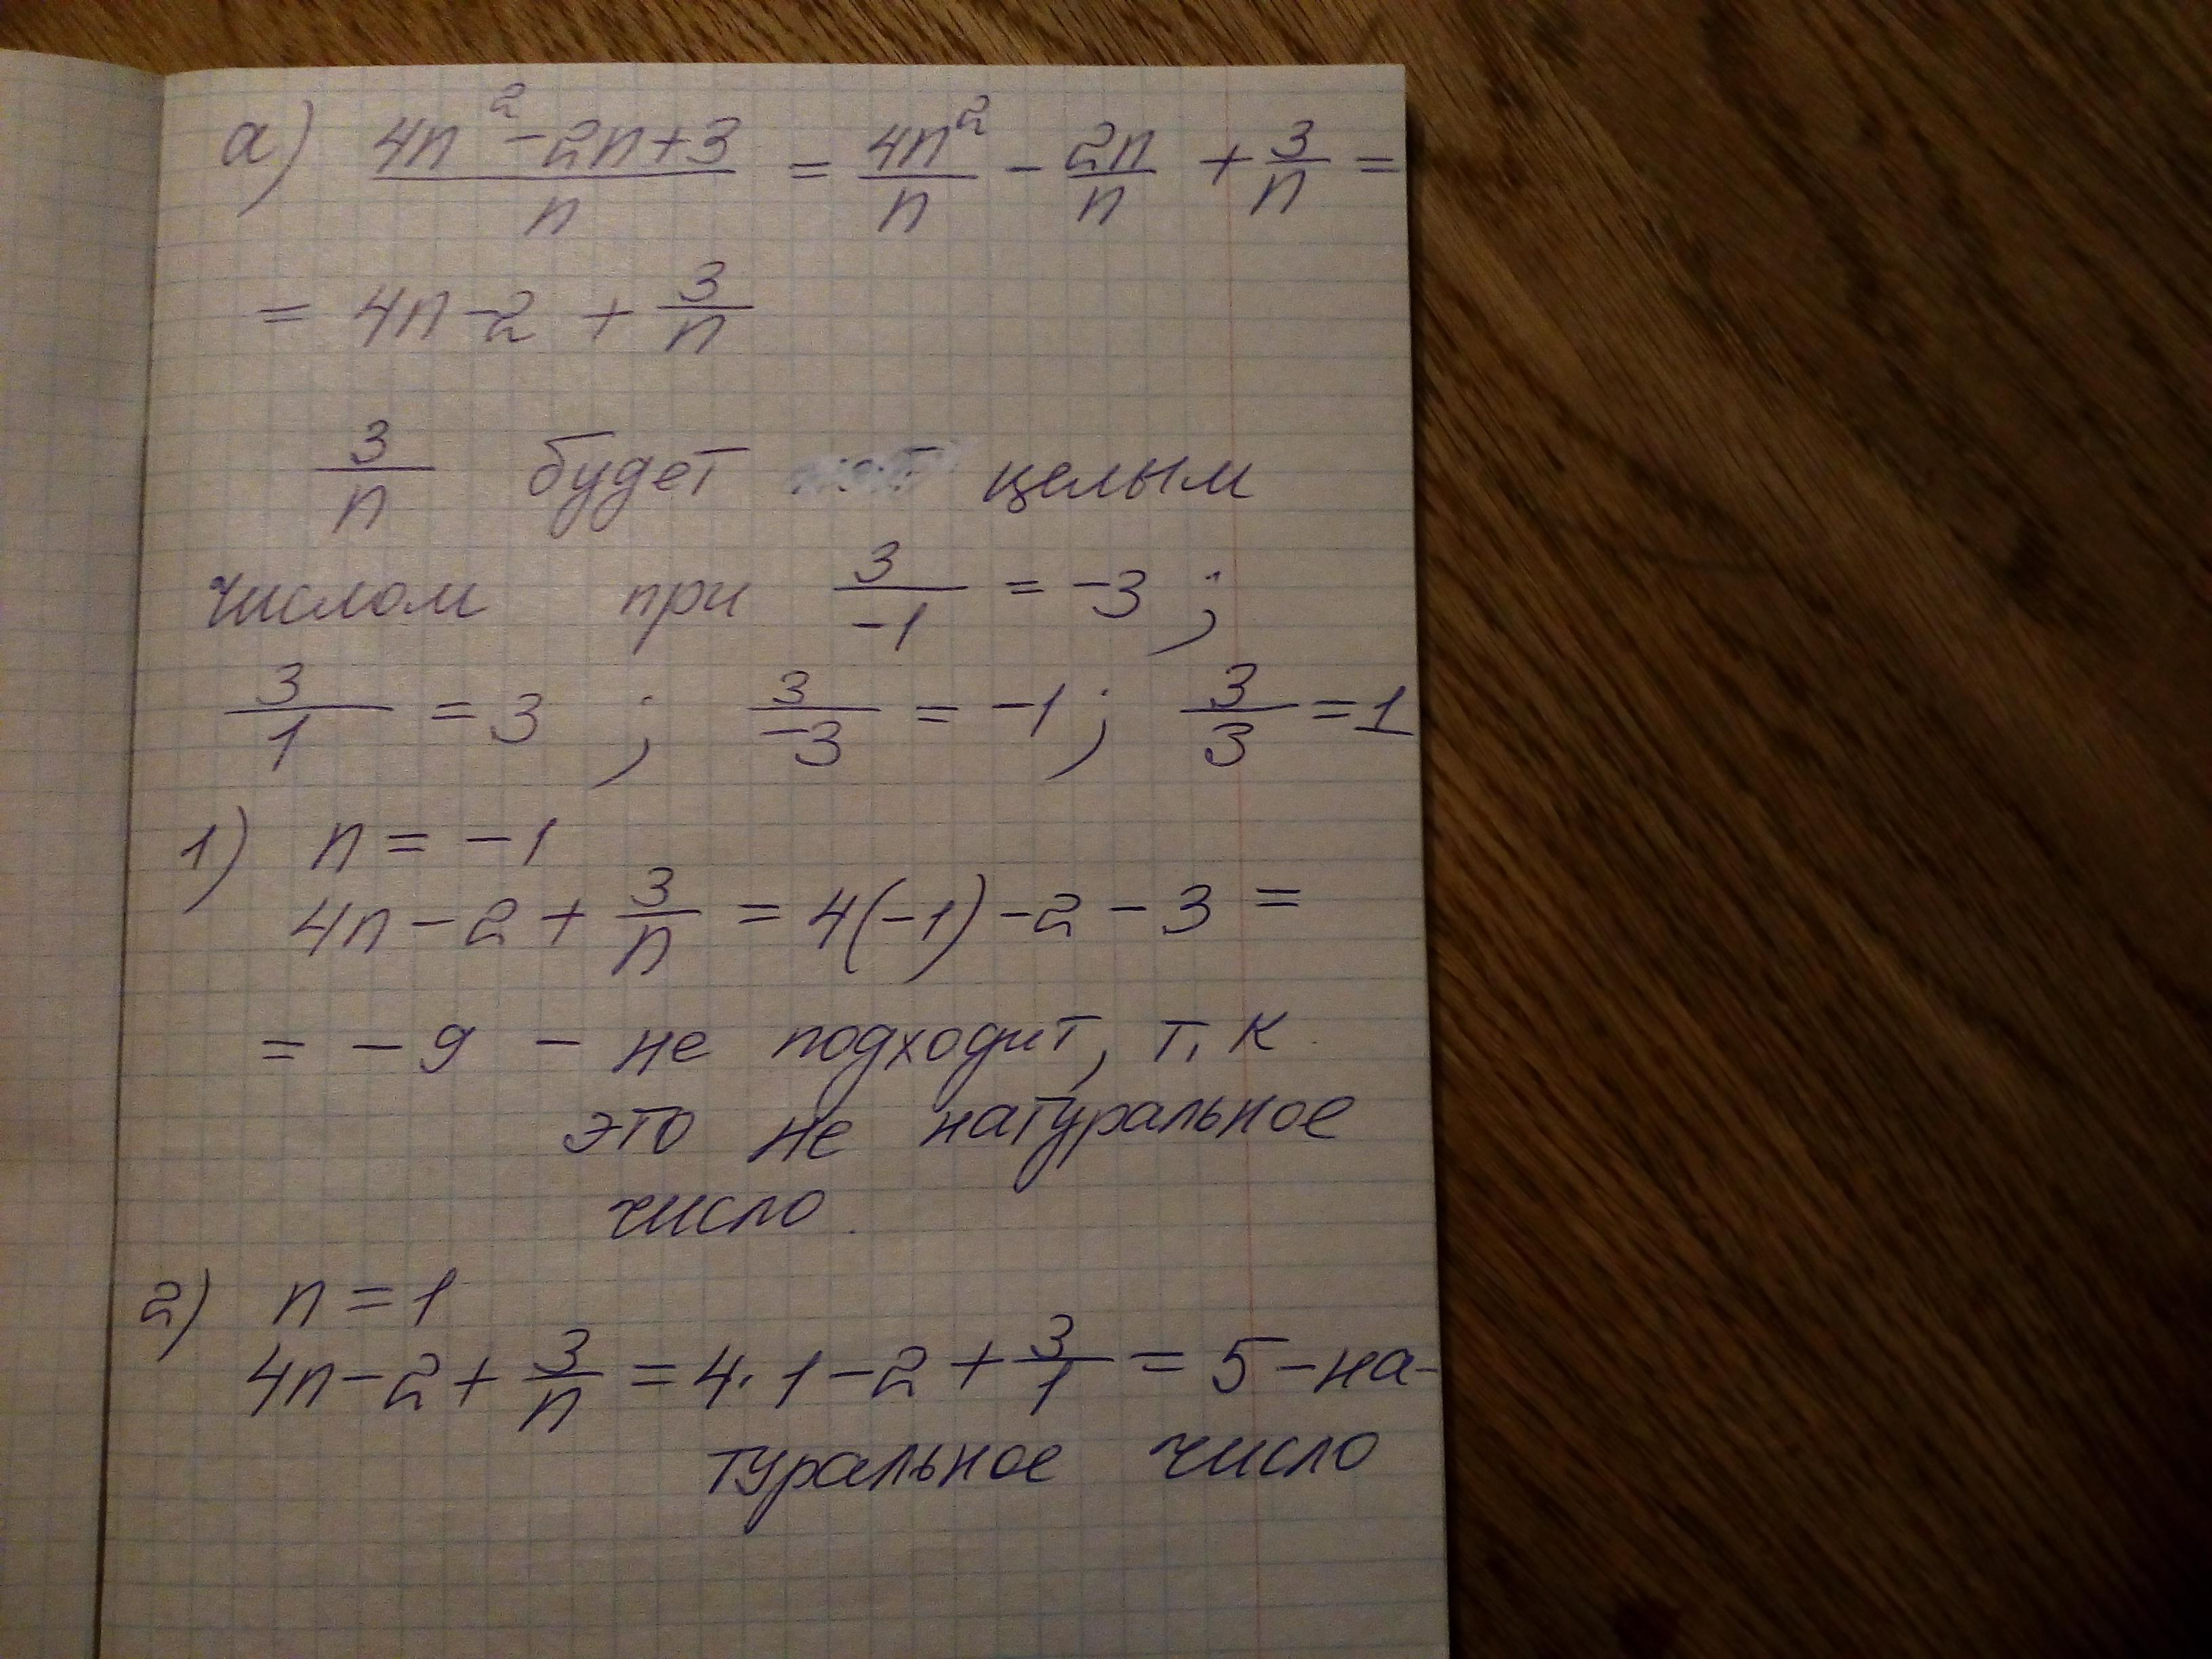 а) (4n² - 2n + 3)/n = 4n²/n - 2n/n + 3/n =
= 4n - 2 + 3/n
3/n будет целым
числом при 3/-1 = -3 ;
3/1 = 3 ; 3/-3 = -1 ; 3/3 = 1
1) n = -1
4n - 2 + 3/n = 4(-1) - 2 - 3 =
= -9 - не подходит, т.к
это не натуральное
число.
2) n = 1
4n - 2 + 3/n = 4·1 - 2 + 3/1 = 5 - на-
туральное число